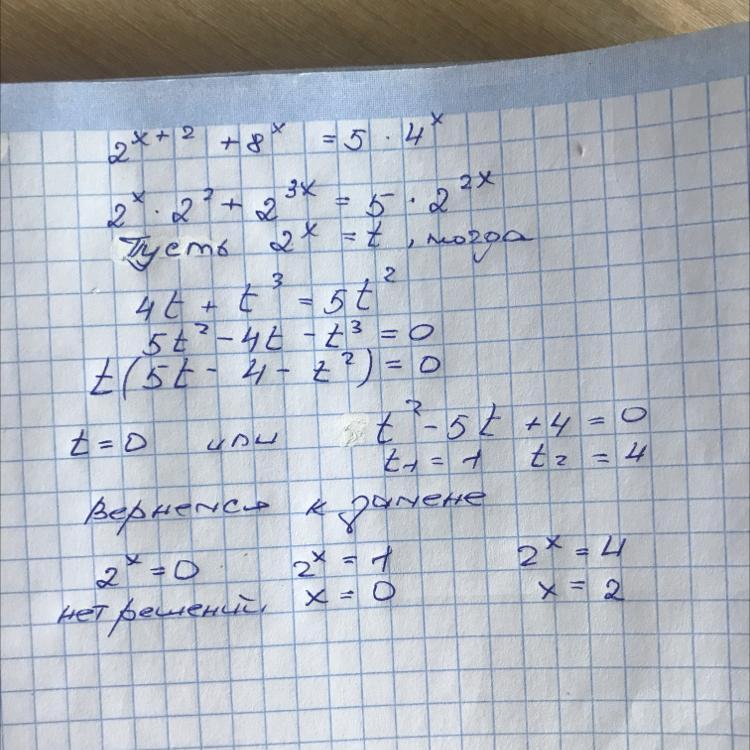 2^{x+2} + 8^x = 5 · 4^x
2^x · 2^2 + 2^{3x} = 5 · 2^{2x}
Пусть 2^x = t, тогда
4t + t^3 = 5t^2
5t^2 - 4t - t^3 = 0
t(5t - 4 - t^2) = 0
t = 0 или t^2 - 5t + 4 = 0
t_1 = 1 t_2 = 4
Вернемся к замене
2^x = 0 2^x = 1 2^x = 4
нет решений. x = 0 x = 2